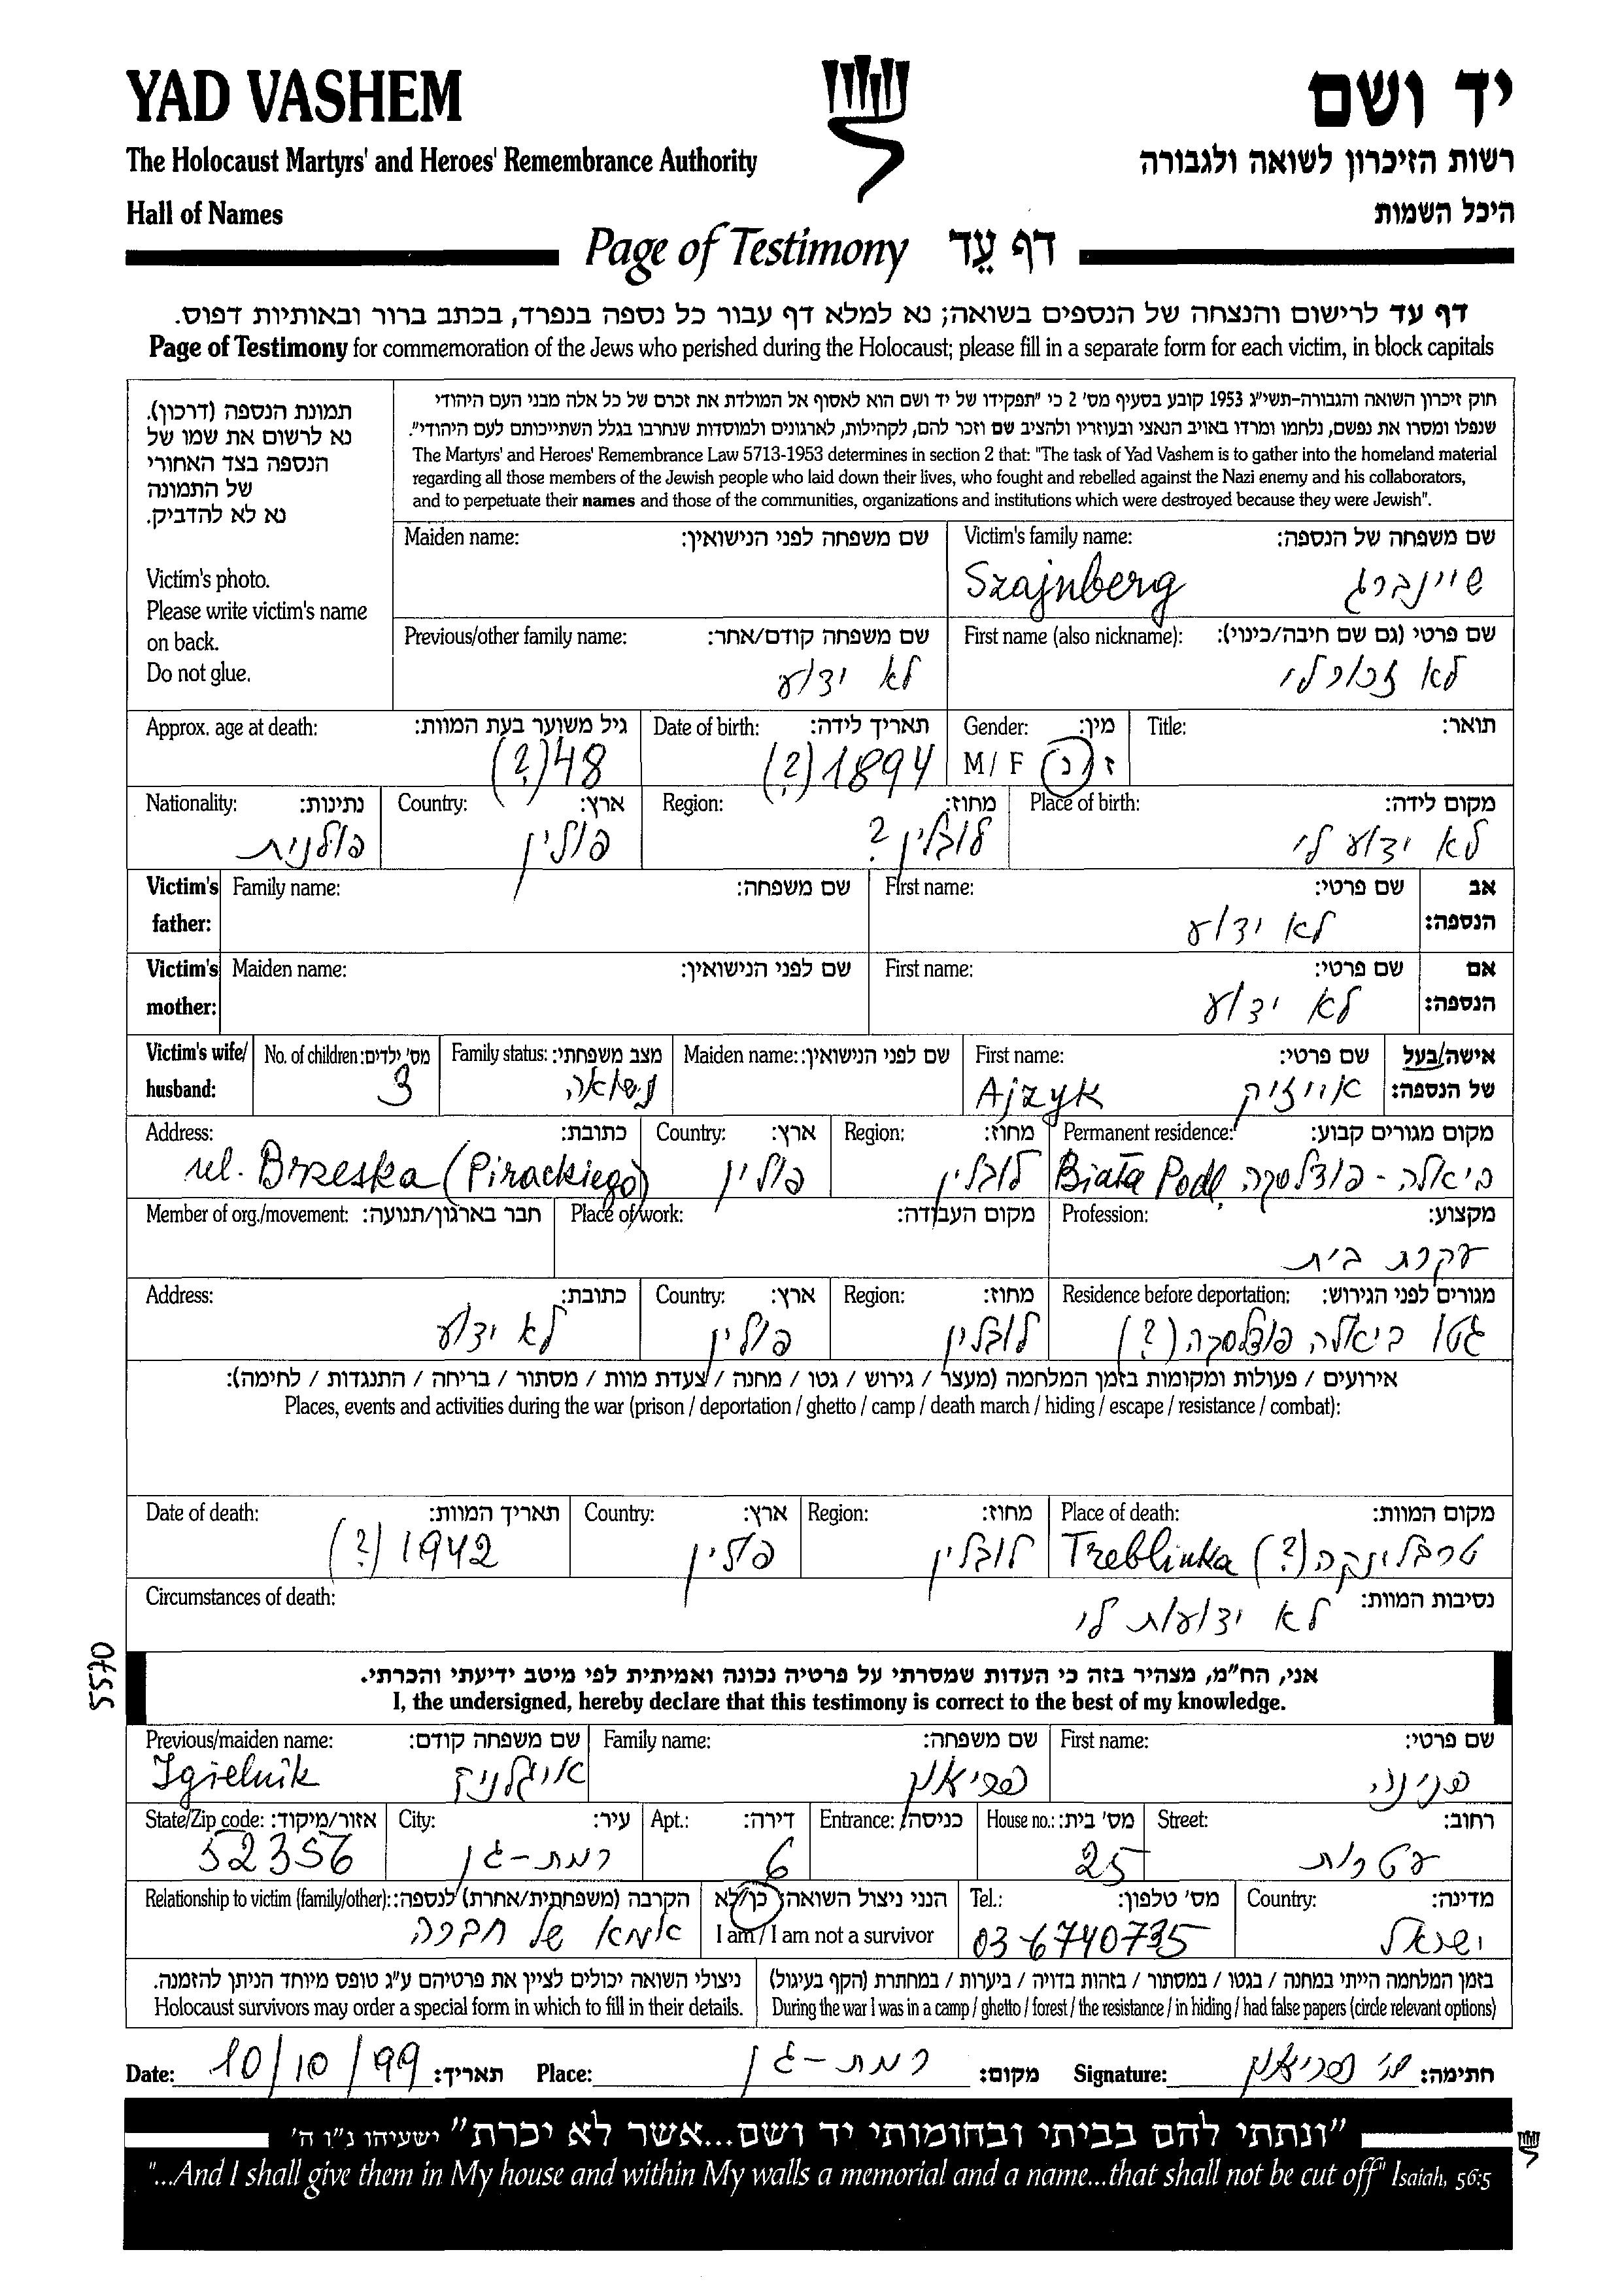 YAD VASHEM
יד ושם
The Holocaust Martyrs' and Heroes' Remembrance Authority
רשות הזיכרון לשואה ולגבורה
Hall of Names
היכל השמות
Page of Testimony דף עֵד
דף עד לרישום והנצחה של הנספים בשואה; נא למלא דף עבור כל נספה בנפרד, בכתב ברור ובאותיות דפוס.
Page of Testimony for commemoration of the Jews who perished during the Holocaust; please fill in a separate form for each victim, in block capitals
תמונת הנספה (דרכון).
נא לרשום את שמו של
הנספה בצד האחורי
של התמונה
נא לא להדביק.
Victim's photo.
Please write victim's name
on back.
Do not glue.
חוק זיכרון השואה והגבורה-תשי״ג 1953 קובע בסעיף מס׳ 2 כי ״תפקידו של יד ושם הוא לאסוף אל המולדת את זכרם של כל אלה מבני העם היהודי
שנפלו ומסרו את נפשם, נלחמו ומרדו באויב הנאצי ובעוזריו ולהציב שם וזכר להם, לקהילות, לארגונים ולמוסדות שנחרבו בגלל השתייכותם לעם היהודי״.
The Martyrs' and Heroes' Remembrance Law 5713-1953 determines in section 2 that: "The task of Yad Vashem is to gather into the homeland material
regarding all those members of the Jewish people who laid down their lives, who fought and rebelled against the Nazi enemy and his collaborators,
and to perpetuate their names and those of the communities, organizations and institutions which were destroyed because they were Jewish".
Victim's family name: שם משפחה של הנספה:
Szajnberg שיינברג
Maiden name: שם משפחה לפני הנישואין:
First name (also nickname): שם פרטי (גם שם חיבה/כינוי):
לא זכור לי
Previous/other family name: שם משפחה קודם/אחר:
לא ידוע
Title: תואר:
Gender: מין:
M / F ז / נ
Date of birth: תאריך לידה:
1894 (?)
Approx. age at death: גיל משוער בעת המוות:
48 (?)
Place of birth: מקום לידה:
לא ידוע לי
Region: מחוז:
לובלין ?
Country: ארץ:
פולין
Nationality: נתינות:
פולנית
Victim's father: אב הנספה:
First name: שם פרטי:
לא ידוע
Family name: שם משפחה:
Victim's mother: אם הנספה:
First name: שם פרטי:
לא ידוע
Maiden name: שם לפני הנישואין:
Victim's wife/ husband: אישה/בעל של הנספה:
First name: שם פרטי:
Ajzyk אייזיק
Maiden name: שם לפני הנישואין:
Family status: מצב משפחתי:
נשואה
No. of children: מס׳ ילדים:
3
Permanent residence: מקום מגורים קבוע:
Biała Podl. ביאלה - פודלסקה
Region: מחוז:
לובלין
Country: ארץ:
פולין
Address: כתובת:
ul. Brzeska (Pirackiego)
Profession: מקצוע:
עקרת בית
Place of work: מקום העבודה:
Member of org./movement: חבר בארגון/תנועה:
Residence before deportation: מגורים לפני הגירוש:
גטו ביאלה פודלסקה (?)
Region: מחוז:
לובלין
Country: ארץ:
פולין
Address: כתובת:
לא ידוע
אירועים / פעולות ומקומות בזמן המלחמה (מעצר / גירוש / גטו / מחנה / צעדת מוות / מסתור / בריחה / התנגדות / לחימה):
Places, events and activities during the war (prison / deportation / ghetto / camp / death march / hiding / escape / resistance / combat):
Place of death: מקום המוות:
Treblinka (?) טרבלינקה
Region: מחוז:
לובלין
Country: ארץ:
פולין
Date of death: תאריך המוות:
1942 (?)
Circumstances of death: נסיבות המוות:
לא ידועות לי
5570
אני, הח״מ, מצהיר בזה כי העדות שמסרתי על פרטיה נכונה ואמיתית לפי מיטב ידיעתי והכרתי.
I, the undersigned, hereby declare that this testimony is correct to the best of my knowledge.
First name: שם פרטי:
פנינה
Family name: שם משפחה:
Previous/maiden name: שם משפחה קודם:
Igielnik איגלניק
Street: רחוב:
עטרות
House no.: מס׳ בית:
25
Entrance: כניסה:
Apt.: דירה:
6
City: עיר:
רמת-גן
State/Zip code: אזור/מיקוד:
52356
Country: מדינה:
ישראל
Tel.: מס׳ טלפון:
03-6740735
הנני ניצול השואה: כן/לא
I am / I am not a survivor
Relationship to victim (family/other): הקרבה (משפחתית/אחרת) לנספה:
אמא של חברה
בזמן המלחמה הייתי במחנה / בגטו / במסתור / בזהות בדויה / ביערות / במחתרת (הקף בעיגול)
During the war I was in a camp / ghetto / forest / the resistance / in hiding / had false papers (circle relevant options)
ניצולי השואה יכולים לציין את פרטיהם ע״ג טופס מיוחד הניתן להזמנה.
Holocaust survivors may order a special form in which to fill in their details.
Date: 10/10/99 תאריך: Place: רמת-גן מקום: Signature: חתימה:
״ונתתי להם בביתי ובחומותי יד ושם...אשר לא יכרת״ ישעיהו נ״ו ה׳
"...And I shall give them in My house and within My walls a memorial and a name...that shall not be cut off" Isaiah, 56:5